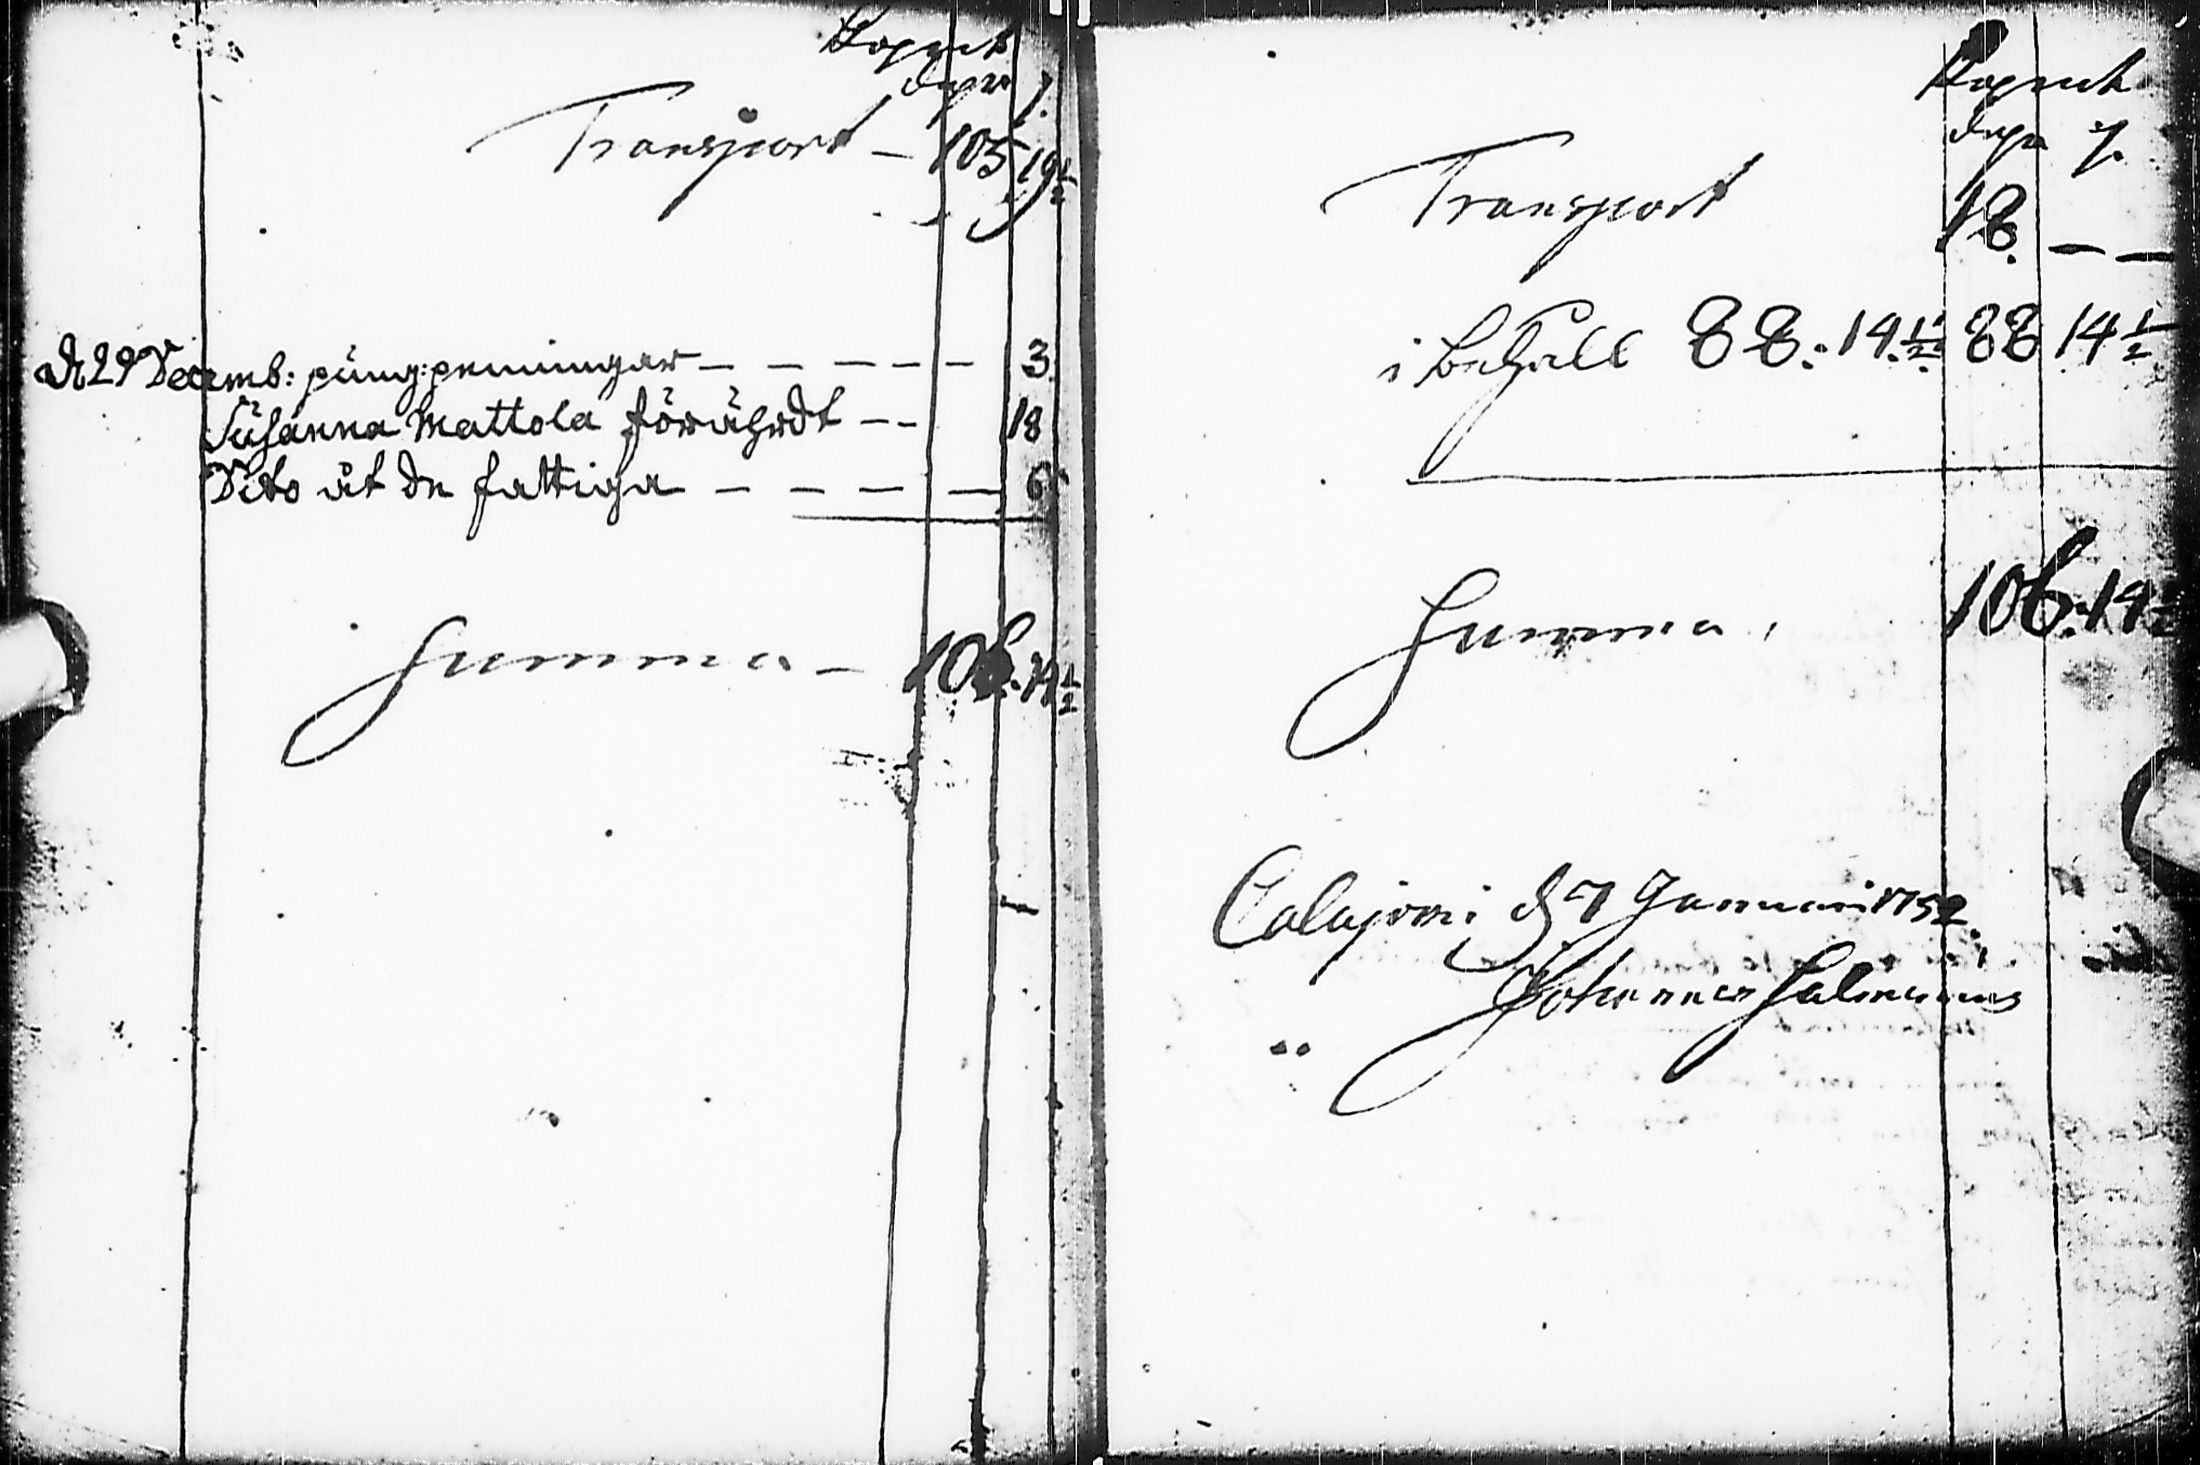 Koparmt
dahr /.
Transport - 105 19 1/2
d. 29 Decemb: pung:penningar - - - - - 3
Susanna Mattola förährdt - - 18
Dito åt de fattiga - - - - 6
Summa - 106. 14 1/2
Transport 18. - -
i behåll 88. 14. 1/2 88 14 1/2
Summa, 106. 14 1/2
Calajoki d. 7 Januarii 1752.
Johannes Salmenius